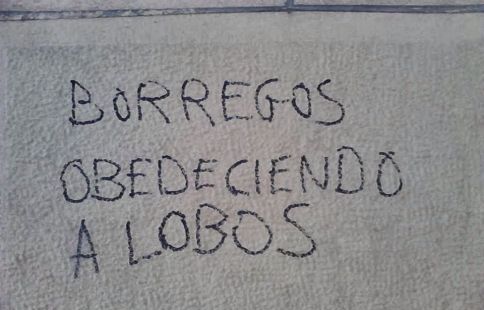 BORREGOS
OBEDECIENDO
A LOBOS